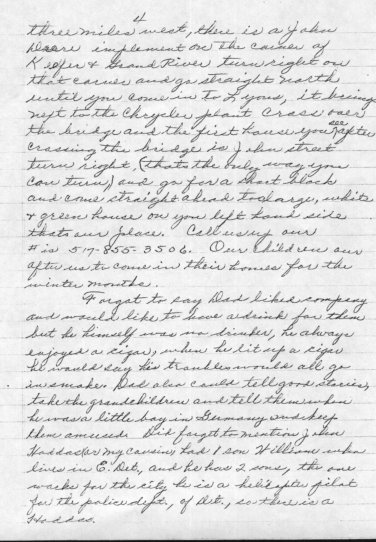 4
three miles west, there is a John
Deere implement on the corner of
Keefer & Grand River turn right on
that corner and go straight north
until you come in to Lyons, it being
next to the Chrysler plant Cross over
the bridge and the first house you see after
crossing the bridge is John street
turn right, (thats the only way you
can turn,) and go for a short block
and come straight ahead to large, white
& green house on you left hand side
thats our place. Call us up our
# is 517-855-3506. Our children are
after us to come in their homes for the
winter months.
Forgot to say Dad liked company
and would like to have a drink for them
but he himself was no drinker, he always
enjoyed a cigar, when he lit up a cigar
he would say his troubles would all go
in smoke. Dad also could tell good stories,
take the grandchildren and tell them when
he was a little boy in Germany and keep
them amused. Did forget to mention John
Haddas (or my cousin) had 1 son William who
lives in E. Det, and he has 2 sons, the one
works for the city he is a helicopter pilot
for the police dept., of Det., so there is a
Haddas.